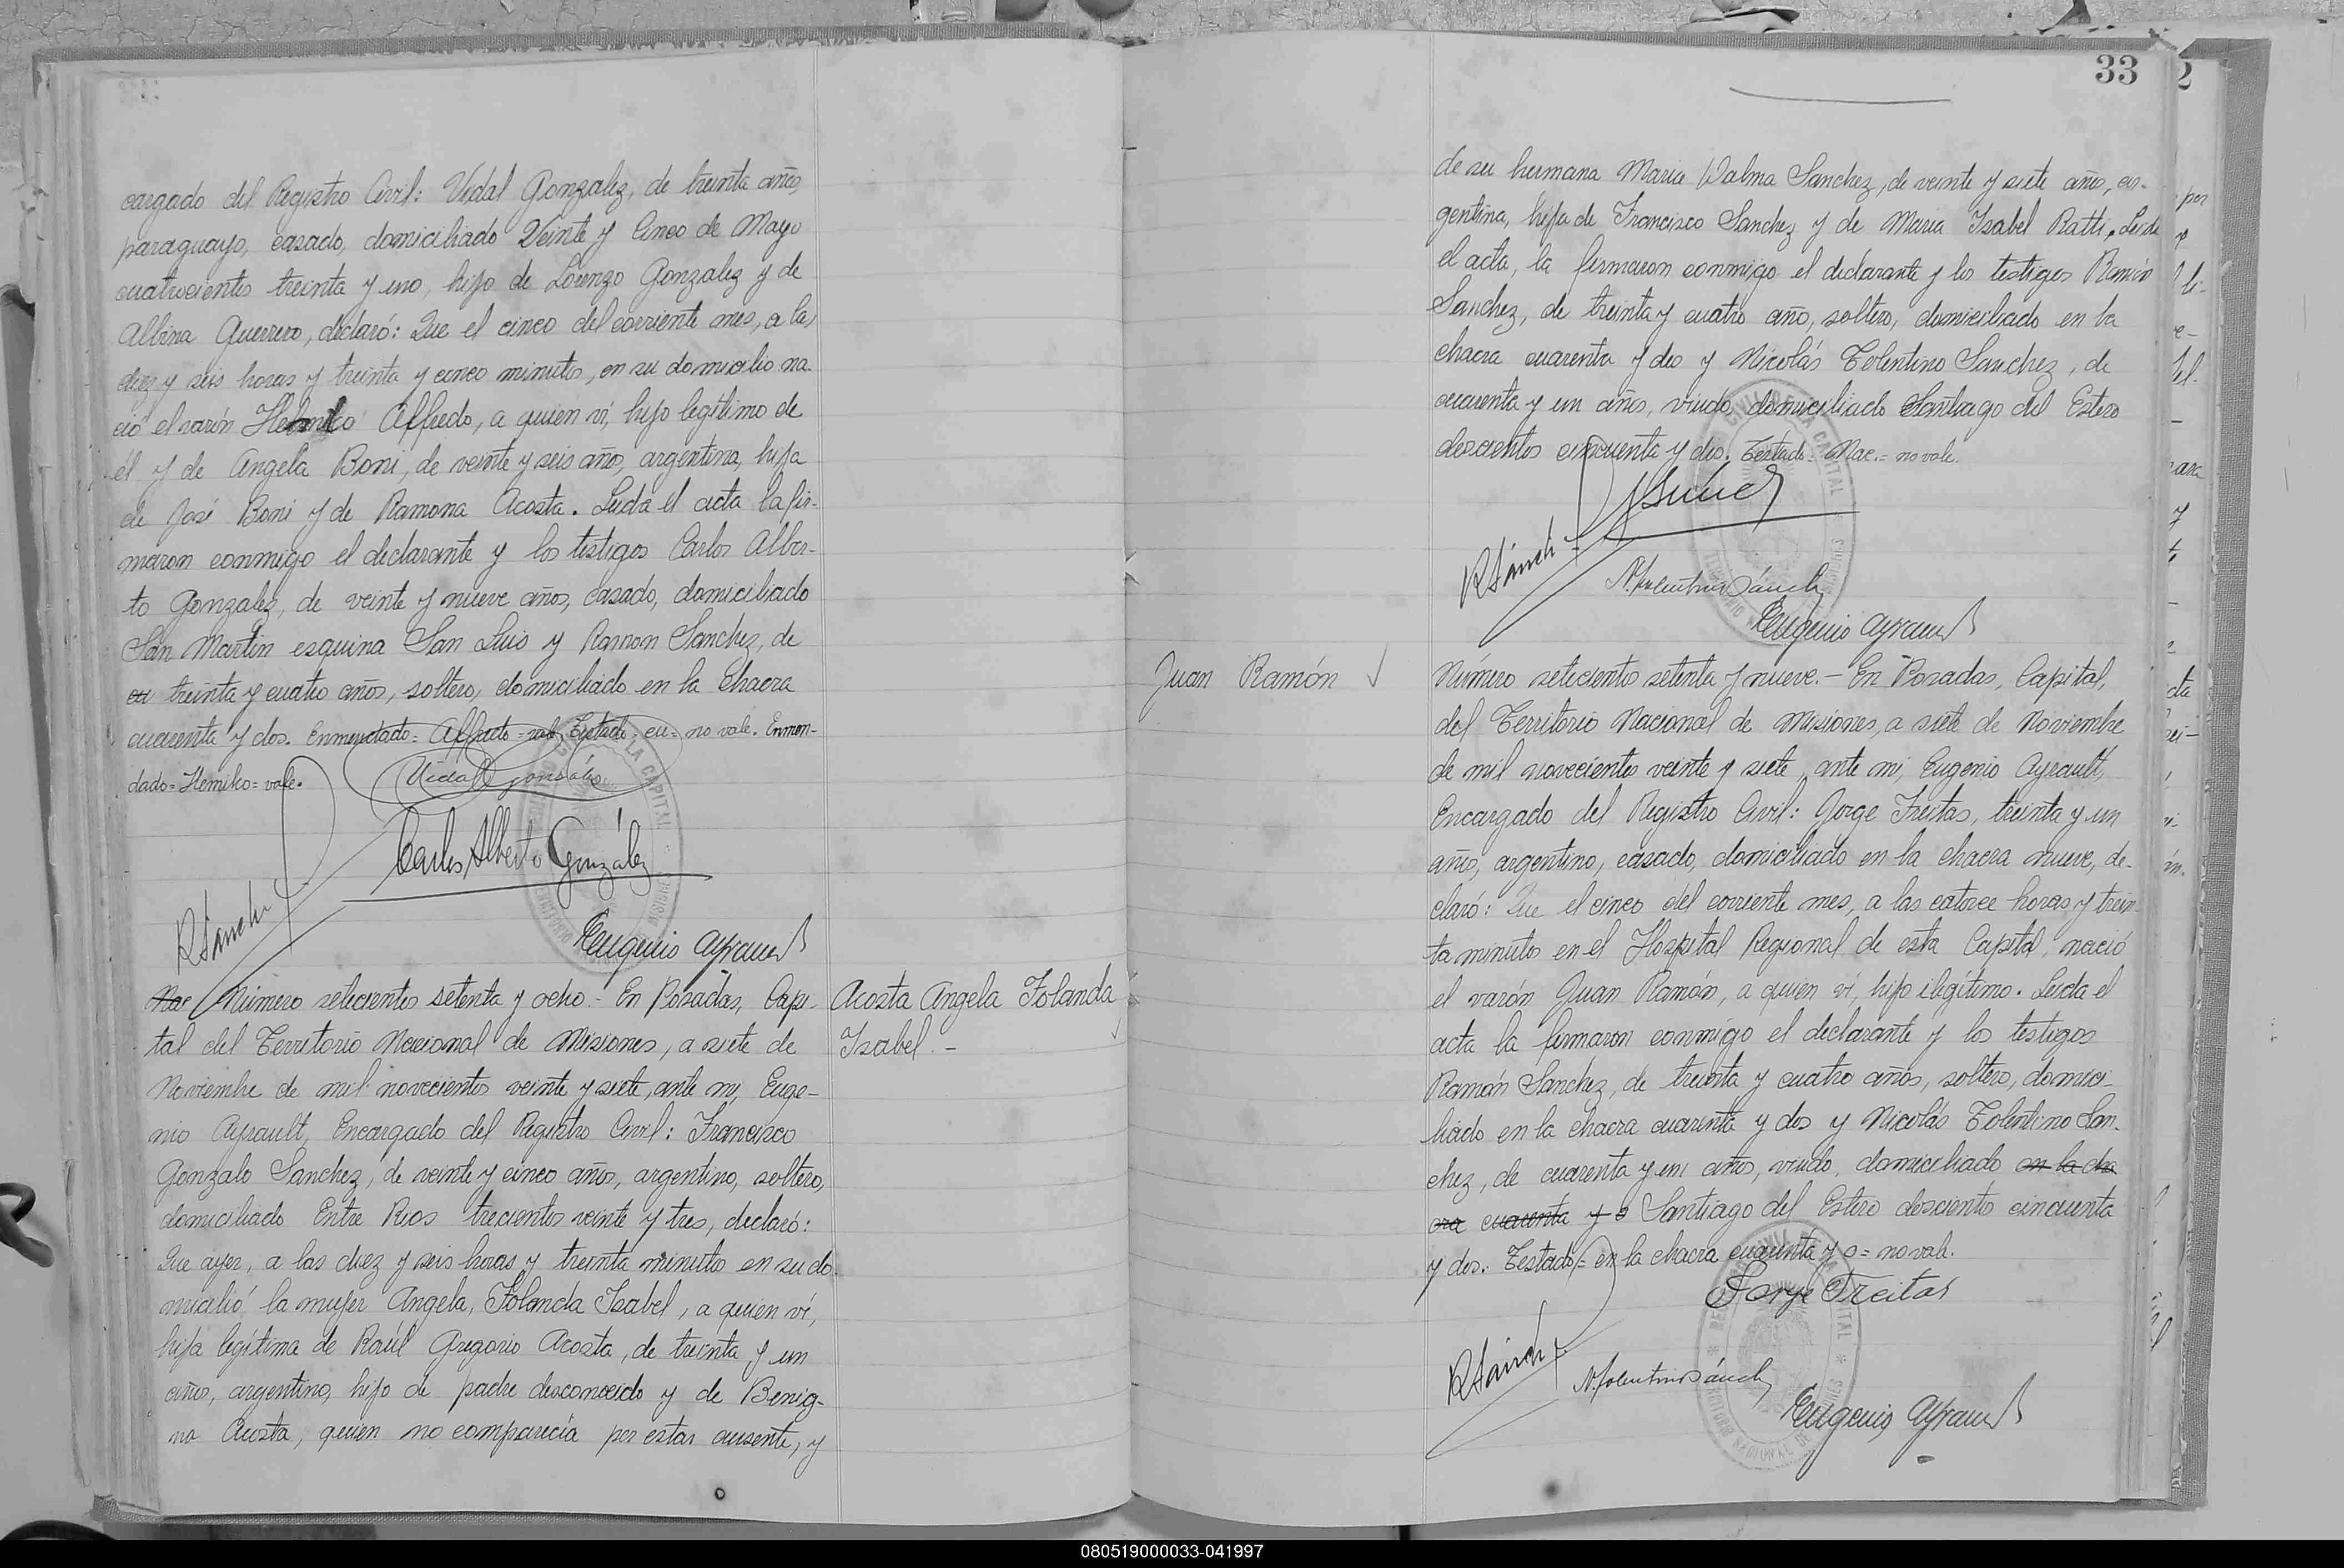 cargado del Registro Civil: Vidal Gonzalez, de treinta años,
paraguayo, casado, domiciliado Veinte y Cinco de Mayo
cuatrocientos treinta y uno, hijo de Lorenzo Gonzalez y de
Albina Guerrero, declaró: Que el cinco del corriente mes, a las
diez y seis horas y treinta y cinco minutos, en su domicilio na-
ció el varón Alfredo, a quien ví, hijo legítimo de
él y de Angela Boni, de veinte y seis año, argentina, hija
de José Boni y de Ramona Acosta. Leida el acta la fir-
maron conmigo el declarante y los testigos Carlos Alber-
to Gonzalez, de veinte y nueve años, casado, domiciliado
San Martin esquina San Luis y Ramon Sanchez, de
cu treinta y cuatro años, soltero, domiciliado en la Chacra
cuarenta y dos. Enmendado= Alfredo = vale, Testado: cu= no vale. Enmen-
dado= Hemiko= vale.
Vidal Gonzáles
Carlos Alberto González
R Sánchez
Eugenio Ayrault
Nac Número setecientos setenta y ocho.- En Posadas, Capi-
tal del Territorio Nacional de Misiones, a siete de
Noviembre de mil novecientos veinte y siete, ante mi, Euge-
nio Ayrault, Encargado del Registro Civil: Francisco
Gonzalo Sanchez, de veinte y cinco años, argentino, soltero,
domiciliado Entre Rios trecientos veinte y tres, declaró:
Que ayer, a las diez y seis horas y treinta minutos en su do-
micilió la mujer Angela, Iolanda Isabel, a quien ví,
hija legítima de Raúl Gregorio Acosta, de treinta y un
años, argentino, hijo de padre desconocido y de Benig-
na Acosta, quien no comparecía por estar ausente, y
Acosta Angela Iolanda
Isabel.-
33
de su hermana Maria Walma Sanchez, de veinte y siete años, ar-
gentina, hija de Francisco Sanchez y de Maria Isabel Ratti. Leida
el acta, la firmaron conmigo el declarante y los testigos Ramón
Sanchez, de treinta y cuatro año, soltero, domiciliado en la
chacra cuarenta y dos y Nicolás Tolentino Sanchez, de
cuarenta y un años, viudo, domiciliado Santiago del Estero
doscientos cincuenta y dos. Testado- Nac.= no vale.
R Sánchez
N. Tolentino Sánchez
Eugenio Ayrault
Juan Ramón
Número setecientos setenta y nueve.- En Posadas, Capital,
del Territorio Nacional de Misiones, a siete de Noviembre
de mil novecientos veinte y siete, ante mi, Eugenio Ayrault,
Encargado del Registro Civil: Jorge Freitas, treinta y un
años, argentino, casado, domiciliado en la chacra nueve, de-
claró: Que el cinco del corriente mes, a las catorce horas y trein-
ta minutos en el Hospital Regional de esta Capital, nació
el varón Juan Ramón, a quien ví, hijo ilegítimo. Leida el
acta la firmaron conmigo el declarante y los testigos
Ramón Sanchez, de treinta y cuatro años, soltero, domici-
liado en la chacra cuarenta y dos y Nicolás Tolentino San-
chez, de cuarenta y un años, viudo, domiciliado en la cha
cra cuarenta y o Santiago del Estero doscientos cincuenta
y dos. Testado= en la chacra cuarenta y o= no vale.
Jorge Freitas
R Sánchez
N. Tolentino Sánchez
Eugenio Ayrault
080519000033-041997